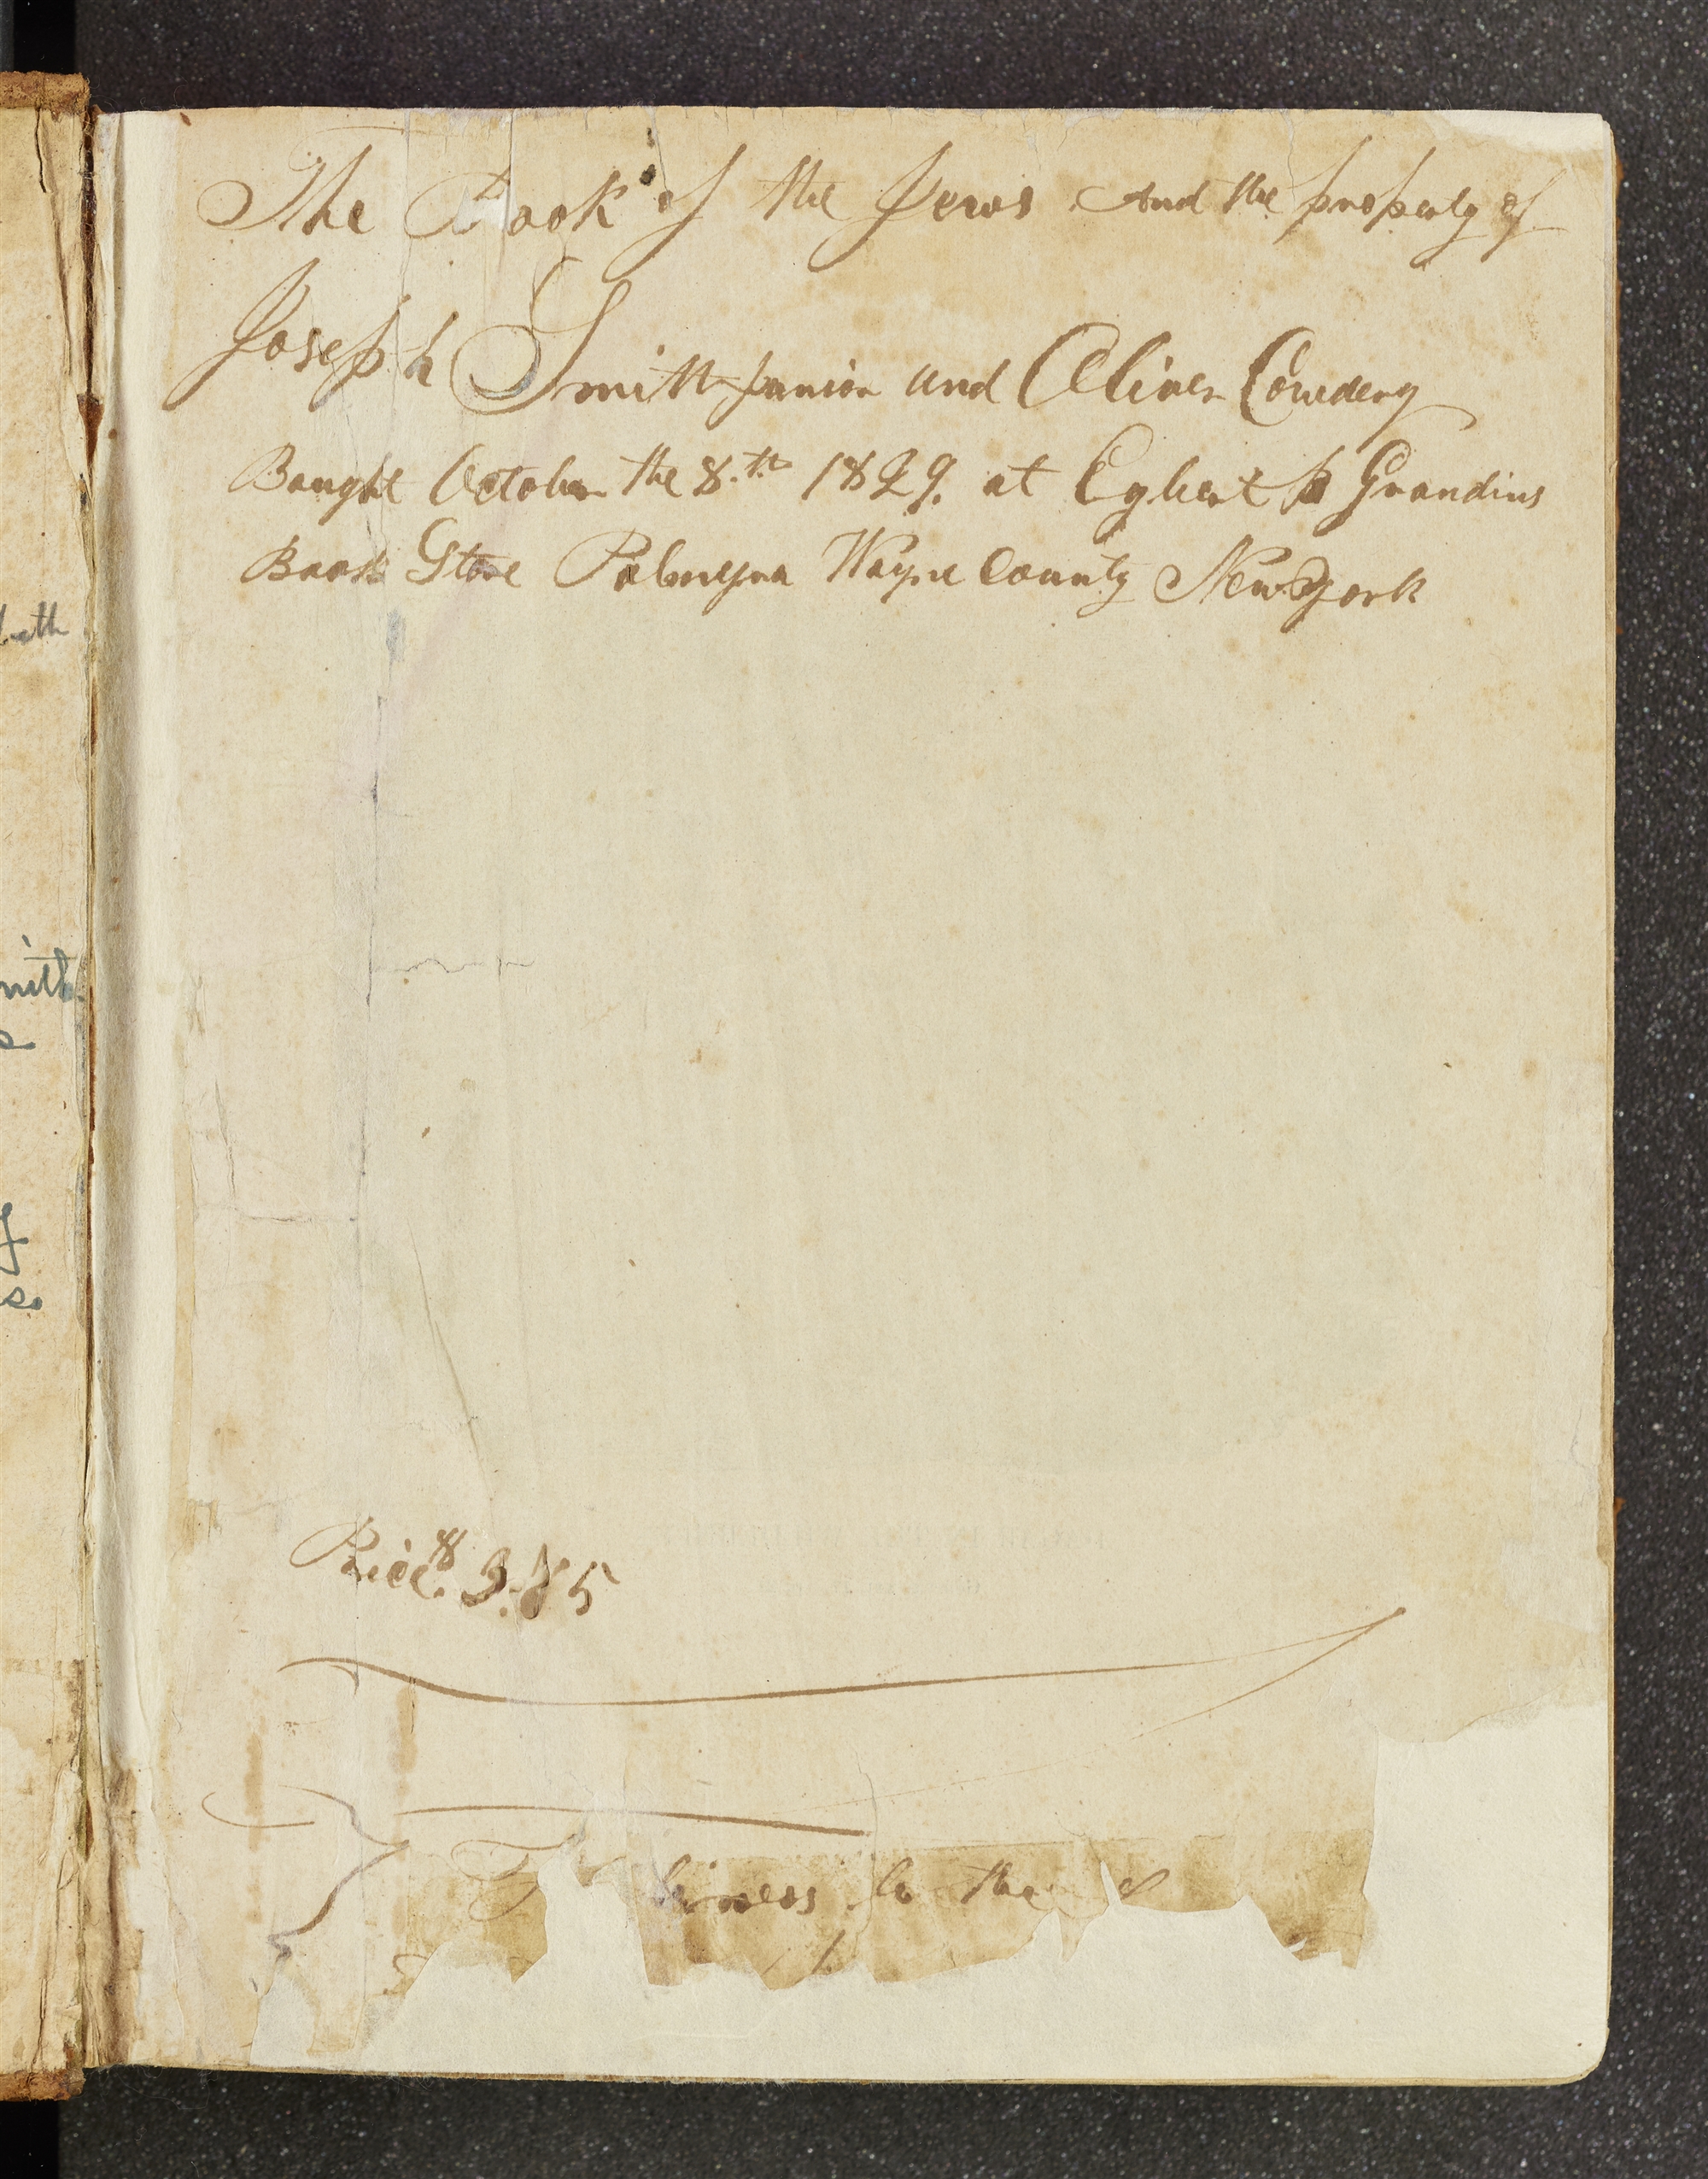 The Book of the Jews And the property of
Joseph Smith Junior and Oliver Cowdery
Bought October the 8.th 1829. at Egbert B Grandins
Book Store Palmyra Wayne County New York
Price $ 3.75
to the